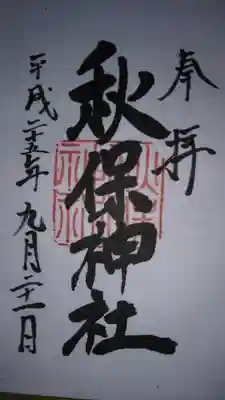 奉拝
秋保神社
平成二十五年九月二十一日